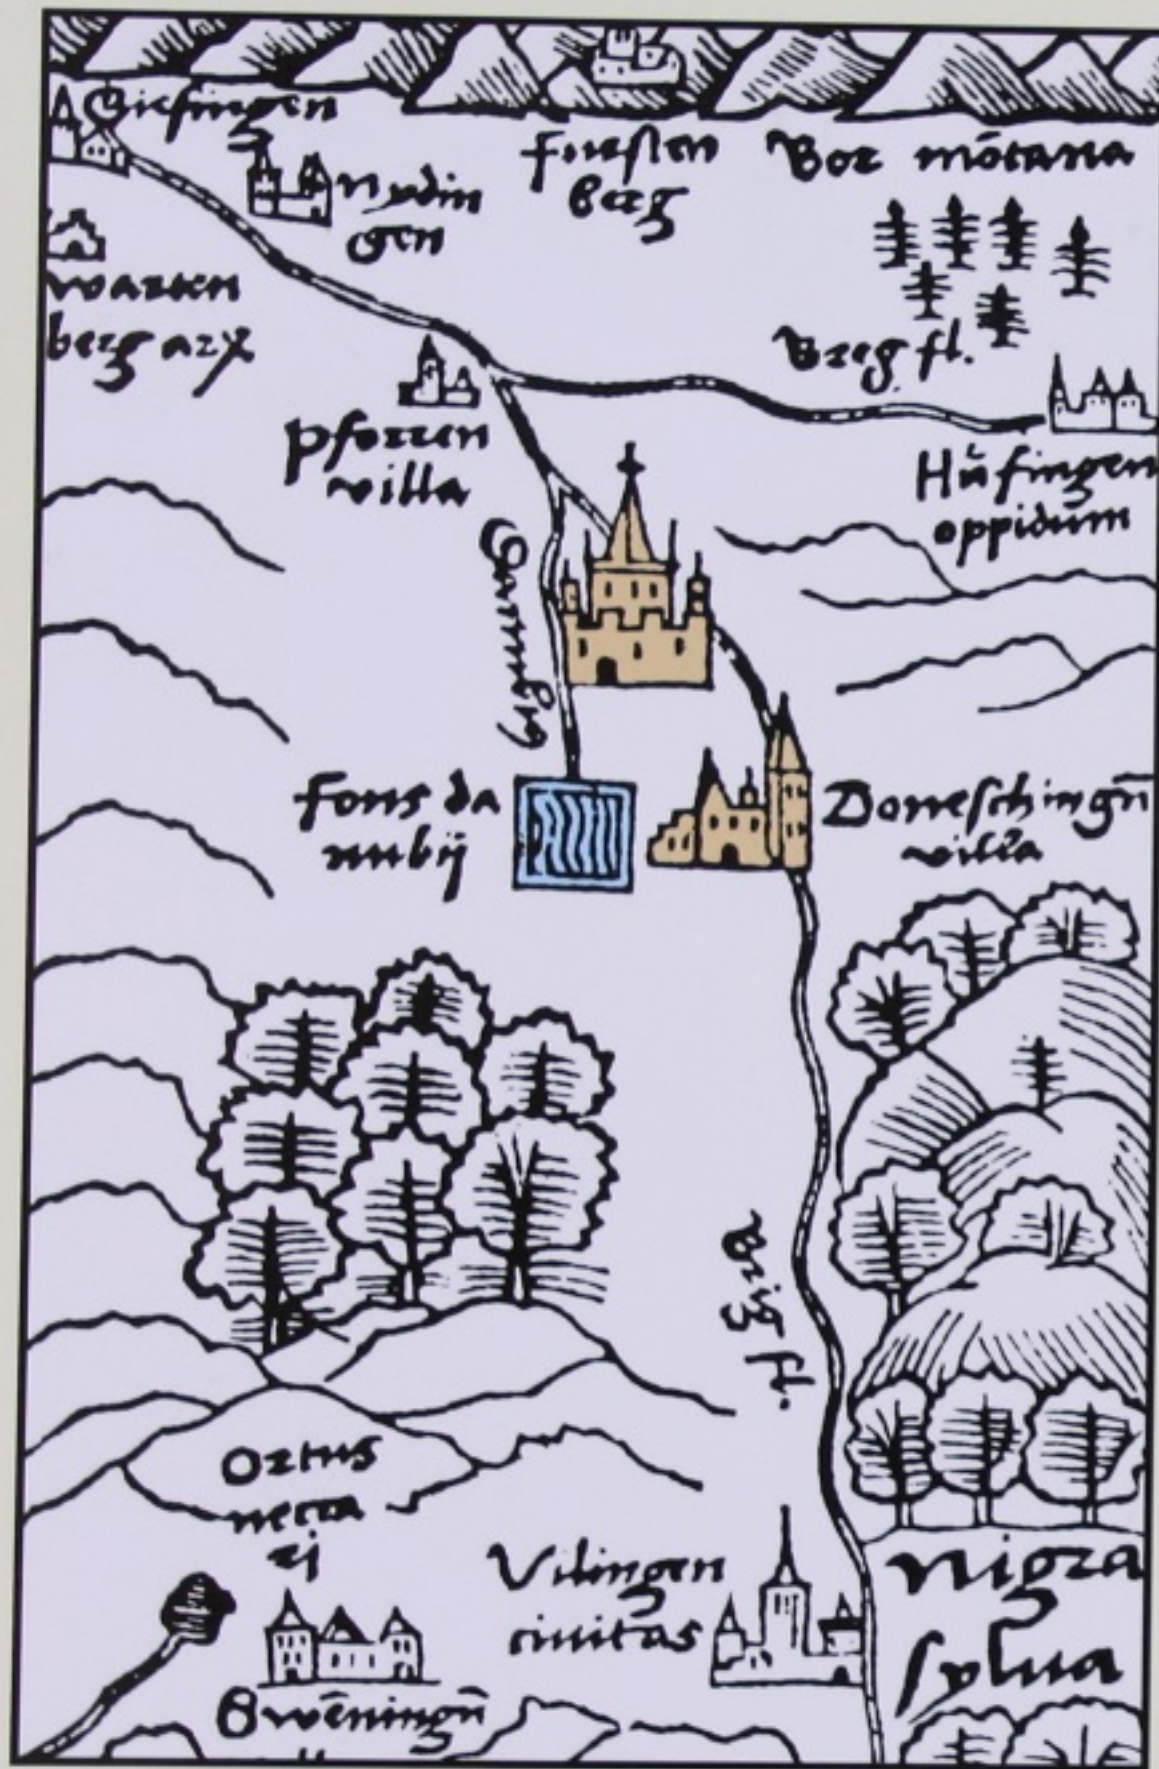 Giesingen
Fursten
berg
Bor mōtana
nydin
gen
warten
berg arx
Breg. fl.
pforren
villa
Hŭfingen
oppidum
Fons da
nubij
Doneschingn̄
villa
Brig fl.
Ortus
necca
rj
Vilingen
ciuitas
Nigra
sylua
Swēningn̄